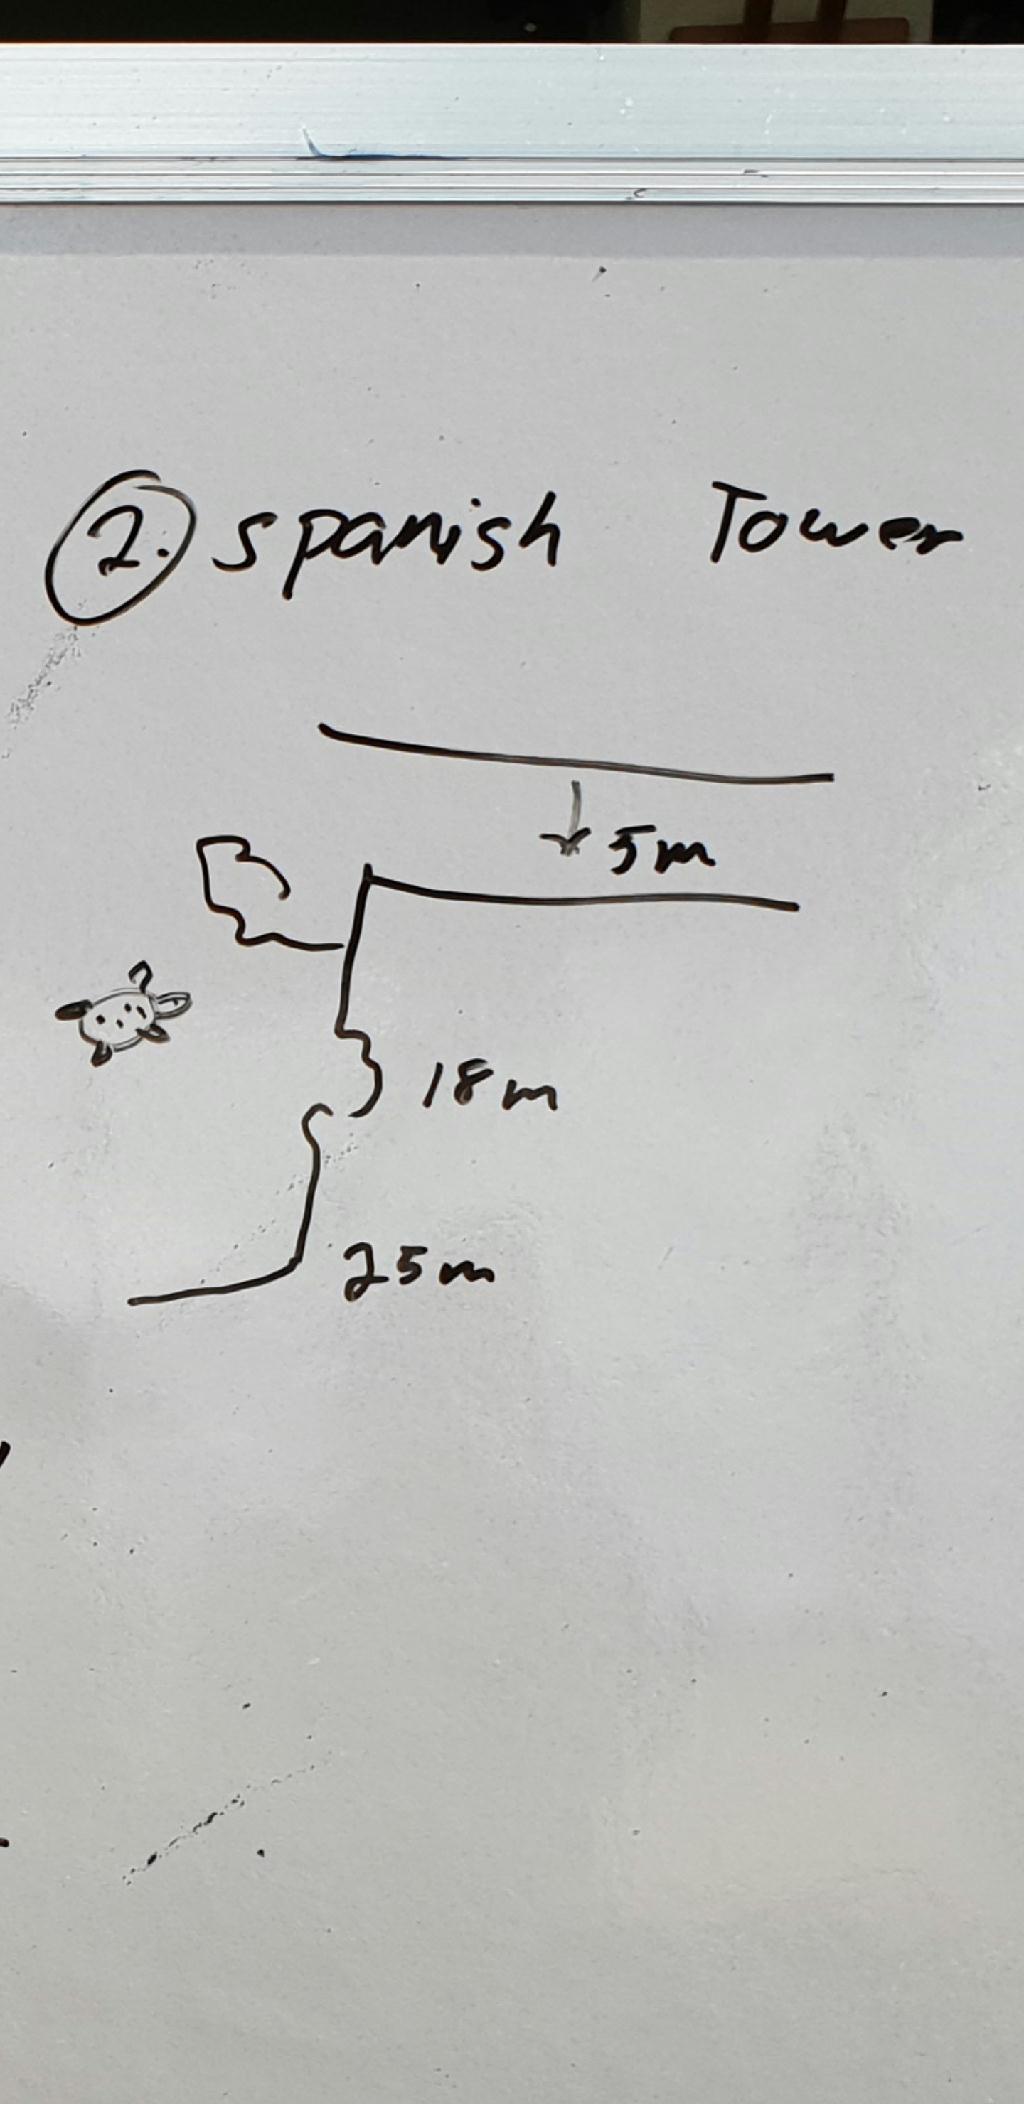 2. spanish Tower
5m
18m
25m